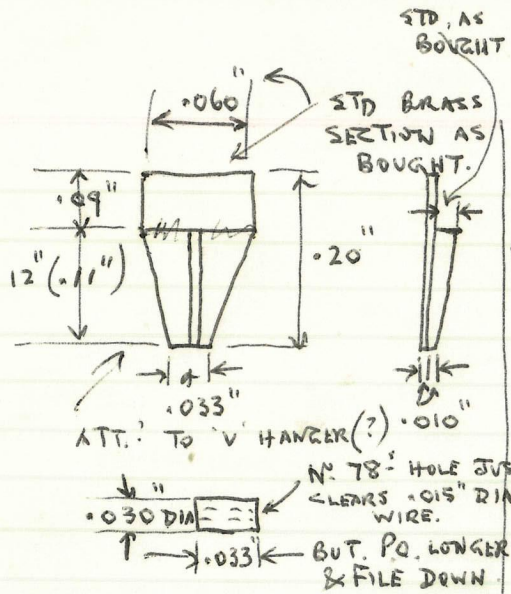 STD. AS
BOUGHT
.060"
STD BRASS
SECTION AS
BOUGHT.
.09"
.20"
12" (.11")
.033"
.010"
ATT. TO 'V' HANGER (?)
No. 78 HOLE JUS
CLEARS .015" DIA
WIRE.
.030" DIA
.033"
BUT. LONGER
& FILE DOWN